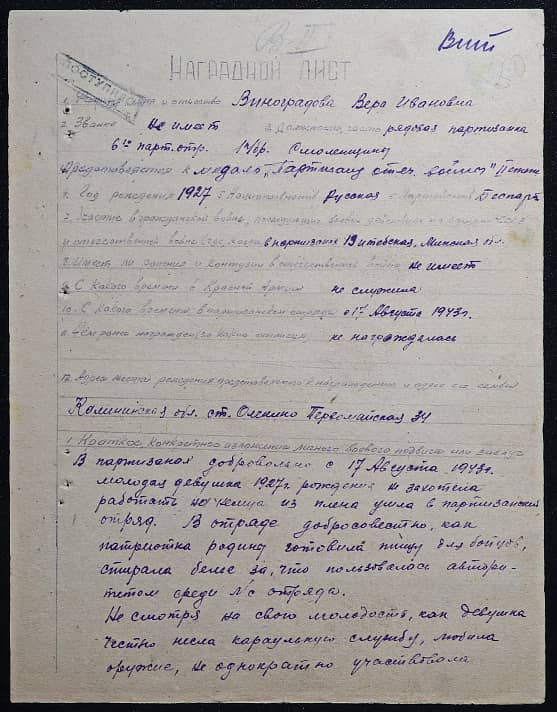 В-II
Вий
ПОСТУПИЛ
НАГРАДНОЙ ЛИСТ
1. Фамилия имя и отчество Виноградова Вера Ивановна
2. Звание Не имеет 3. Должность, часть рядовая партизанка
6й парт. отр. 1 Смоленщину
Представляется к медаль "Партизану отеч. войны" II степени
4. Год рождения 1927 5 национальность Русская 6 Партийность Беспарт
7. Участие в гражданской войне, последующих боевых действиях по защите СССР
и отечественной войне (где, когда) в партизанах Витебская, Минская обл.
8. Имеет ли ранения и контузии в отечественной войне не имеет
9. С какого времени в Красной Армии не служила
10. С какого времени в партизанском отряде с 17 Августа 1943 г.
11. Чем ранее награжден (за какие отличия) не награждалась
12. Адрес места рождения представляемого к награждению и адрес его семьи
Калининская обл. ст. Оленино Первомайская 34
1. Краткое, конкретное изложение личного боевого подвига или заслуг
В партизанах добровольно с 17 Августа 1943 г.
молодая девушка 1927 г. рождения не захотела
работать на немца из плена ушла в партизанский
отряд. В отряде добросовестно, как
патриотка родины готовила пищу для бойцов,
стирала белье за, что пользовалась автори-
тетом среди л/с отряда.
Не смотря на свою молодость, как девушка
честно несла караульную службу, любила
оружие, не однократно участвовала